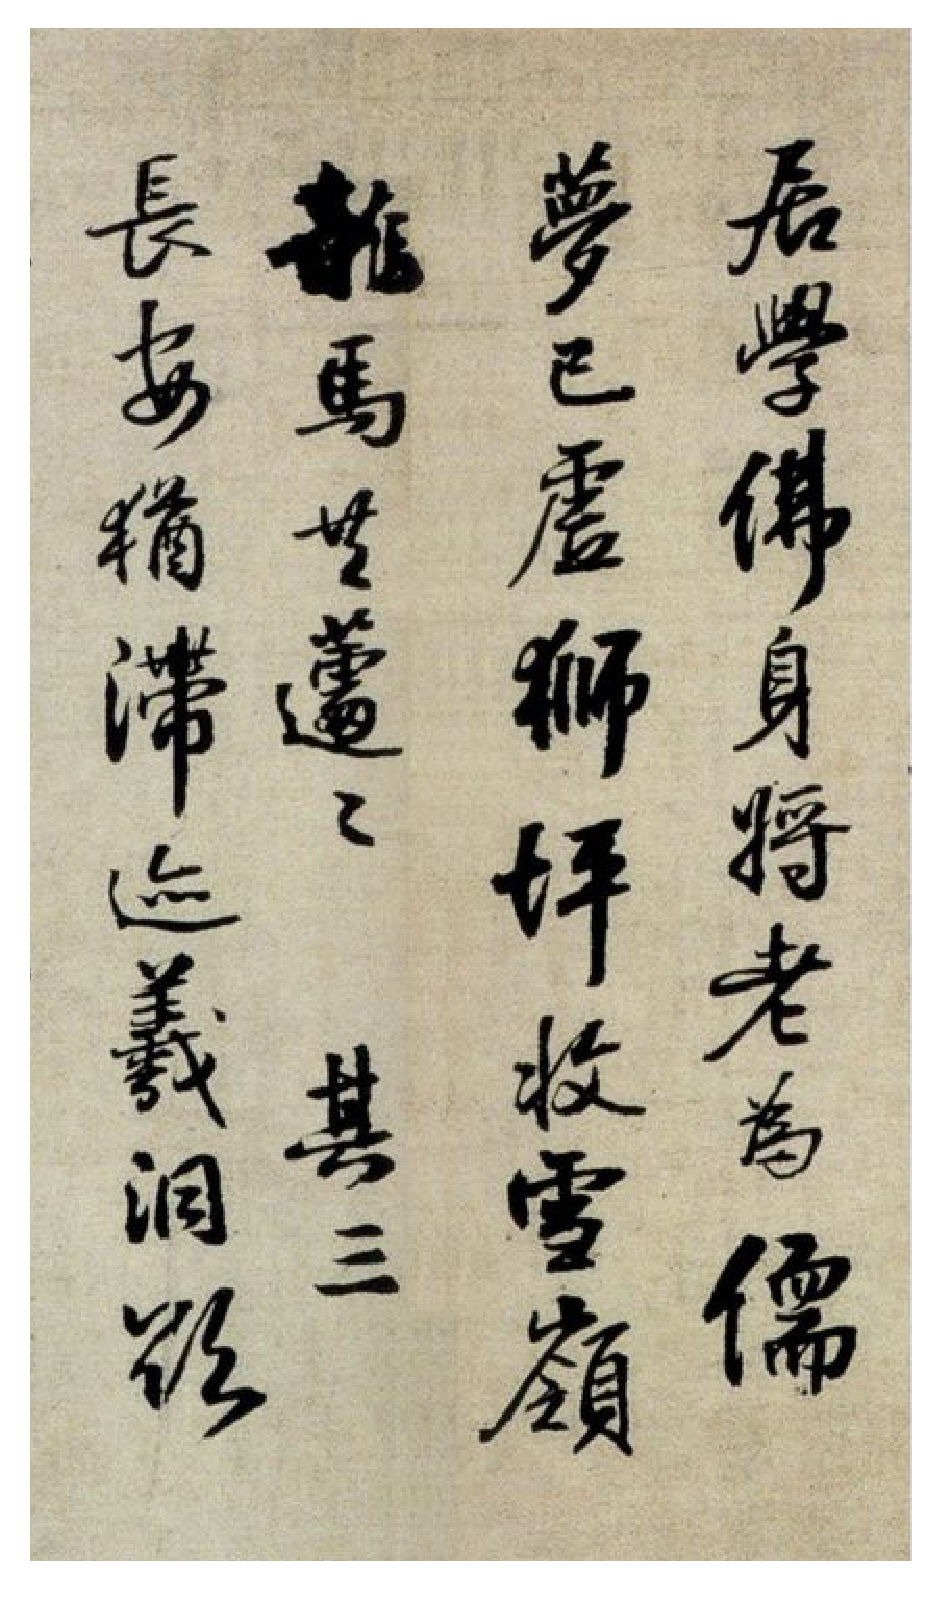 居學佛身將老為儒
夢已虛獅坪收雪嶺
龍馬共蘧〻 其三
長安猶滯迹羲泪欲